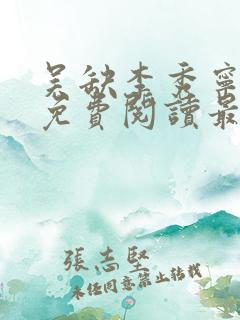 吴缺李秀宁
免費閱讀最
張志堅
未经同意禁止转载